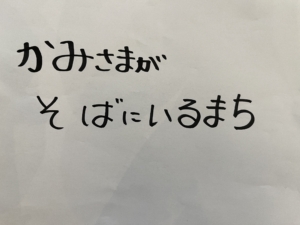 かみさまが
そばにいるまち